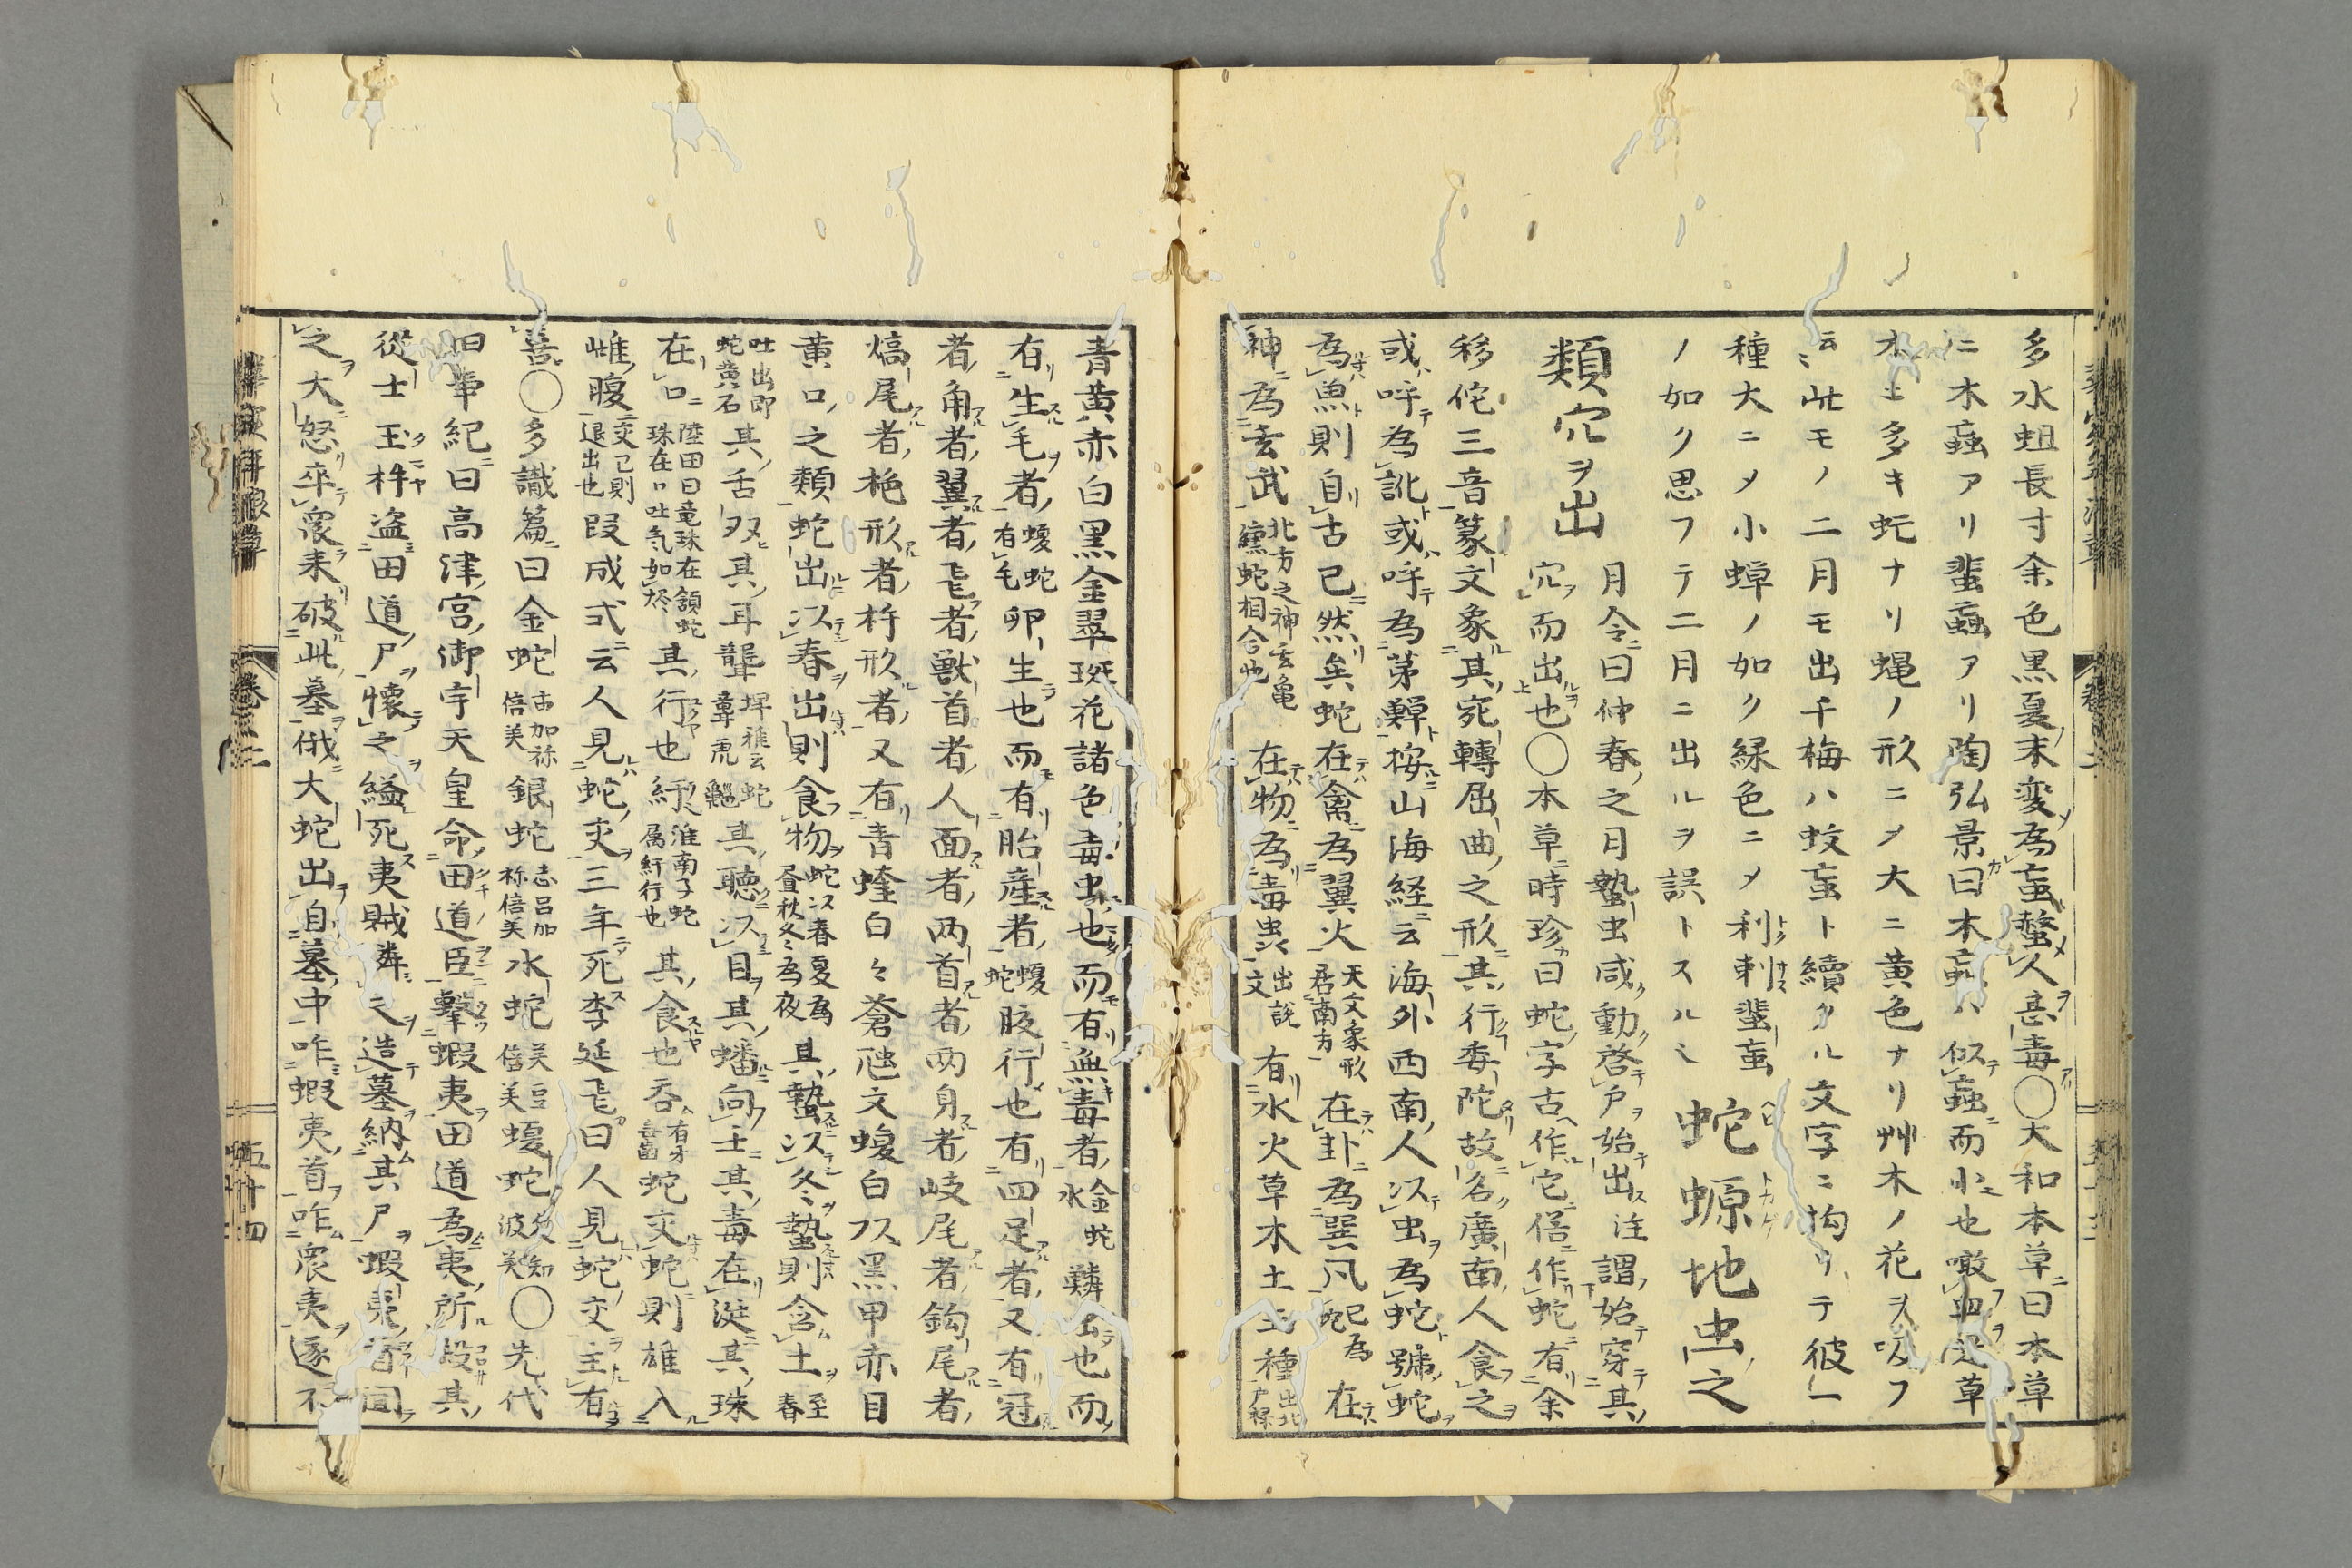 多水蛆長寸余色黒夏末変為䖟螫人甚毒〇大和本草曰本草
ニ木䖟アリ蜚䖟アリ陶弘景曰木䖟ハ似䖟而小也噉血是草
木ニ多キ䖟ナリ蝿ノ形ニメ大ニ黄色ナリ艸木ノ花ヲ吸フ
云〻此モノ二月モ出千梅ハ蚊䖟ト續タル文字ニ拘リテ彼一
種大ニメ小蟬ノ如ク緑色ニメ利刺蜚䖟
ノ如ク思フテ二月ニ出ルヲ誤トスルㇾ 蛇 螈地虫之
類穴ヲ出 月令曰仲春之月蟄虫咸動啓戸始出注謂始穿其
穴而出也〇本草時珍曰蛇字古作它俗作蛇有余
移佗三音篆文象其宛轉屈曲之形其行委陀故名廣南人食之
或呼為訛或呼為茅鱓按山海経云海外西南人以虫為蛇號蛇
為魚則自古已然矣蛇在禽為翼火 天文象形居南方 在卦為巽風 巳為蛇 在
神為玄武 北方之神玄亀纏蛇相合也 在物為毒虫 出説文 有水火草木土五種 出北戸禄
青黄赤白黒金翠斑花諸色毒虫也而有無毒者 金蛇水 鱗虫也而
有生毛者 蝮蛇有毛 卵生也而有胎産者 蝮蛇 腹行也有四足者又有冠
者角者翼者飛者獣首者人面者両首者両身者岐尾者鈎尾者
熇尾者柂形者杵形者又有青蝰白々蒼虺文蝮白双黒甲赤目
黄口之類蛇出以春出則食物 蛇以春夏為昼秋冬為夜 其蟄以冬蟄則含土 至春
吐出即蛇黄石 其舌双其耳聾 埤雅云蛇聾虎齆 其聴以目其蟠向壬其毒在涎其珠
在口 陸田曰竜珠在頷蛇珠在口吐気如烬 其行也紆 淮南子蛇属紆行也 其食也呑 有牙無歯 蛇交蛇則雄入
雌腹 交已則退出也 段成式云人見蛇交三年死李廷飛曰人見蛇交主有
喜〇多識篇曰金蛇 古加祢倍美 銀蛇 志呂加祢倍美 水蛇 美豆倍美 蝮蛇 久知波美 〇先代
旧事紀曰高津宮御宇天皇命田道臣撃蝦夷田道為夷所殺其
從士玉杵盗田道尸懐之縊死夷賊憐之造墓納其尸蝦夷酋聞
之大怒卒衆来破此墓俄大蛇出自墓中咋蝦夷首咋衆夷遂不